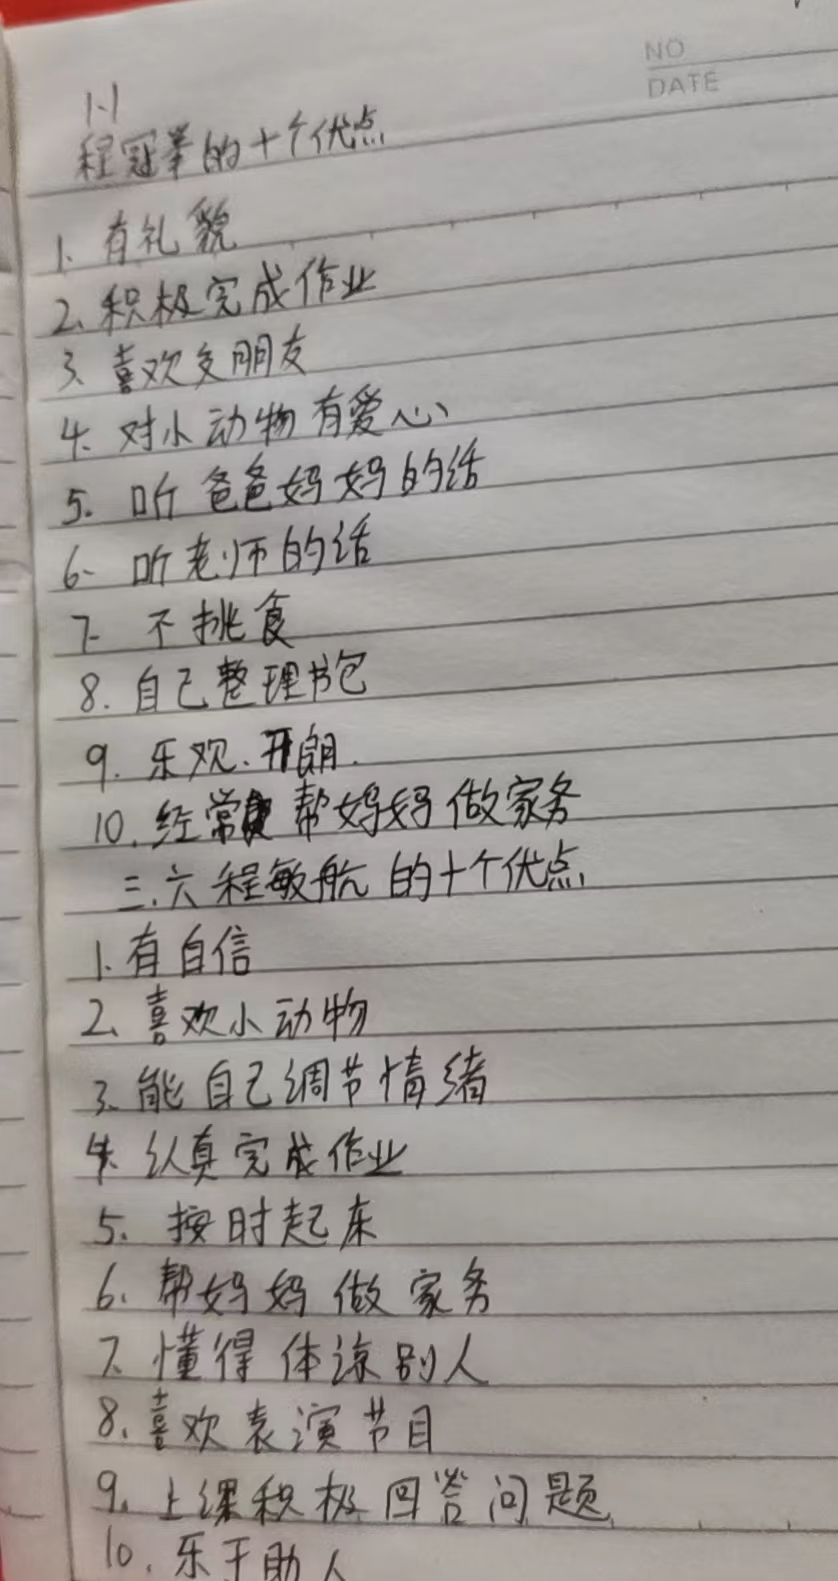 NO
DATE
1-1
程冠峯的十个优点
1. 有礼貌
2. 积极完成作业
3. 喜欢交朋友
4. 对小动物有爱心
5. 听爸爸妈妈的话
6. 听老师的话
7. 不挑食
8. 自己整理书包
9. 乐观.开朗.
10. 经常帮妈妈做家务
三.六程敏航的十个优点
1. 有自信
2. 喜欢小动物
3. 能自己调节情绪
4. 认真完成作业
5. 按时起床
6. 帮妈妈做家务
7. 懂得体谅别人
8. 喜欢表演节目
9. 上课积极回答问题
10. 乐于助人